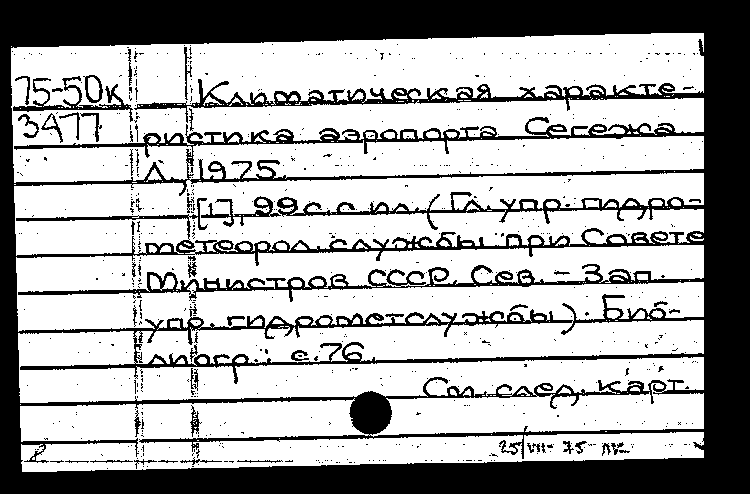 75-50к Климатическая характе-
3477 ристика аэропорта Сегежа
Л., 1975.
[1], 99 с. с ил. (Гл. упр. гидро-
метеорол. службы при Совете
Министров СССР. Сев. - Зап.
упр. гидрометслужбы). Биб-
лиогр.: с. 76.
См. след. карт.
25/VIII-75